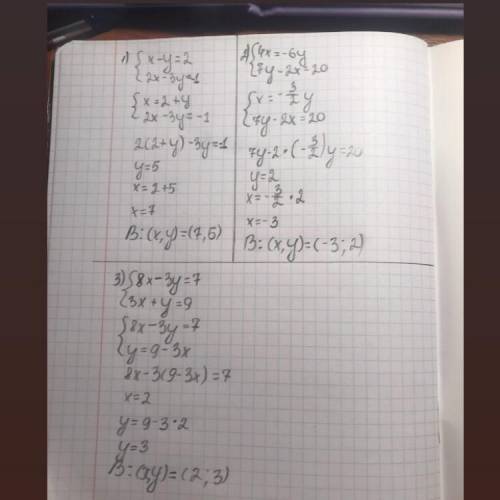 1) { x-y=2
2x-3y=-1
{ x=2+y
2x-3y=-1
2(2+y)-3y=-1
y=5
x=2+5
x=7
В: (x,y)=(7,5)
2) { 4x=-6y
7y-2x=20
{ x=-3/2 y
7y-2x=20
7y-2·(-3/2)y=20
y=2
x=-3/2·2
x=-3
В: (x,y)=(-3;2)
3) { 8x-3y=7
3x+y=9
{ 8x-3y=7
y=9-3x
8x-3(9-3x)=7
x=2
y=9-3·2
y=3
В: (x,y)=(2;3)